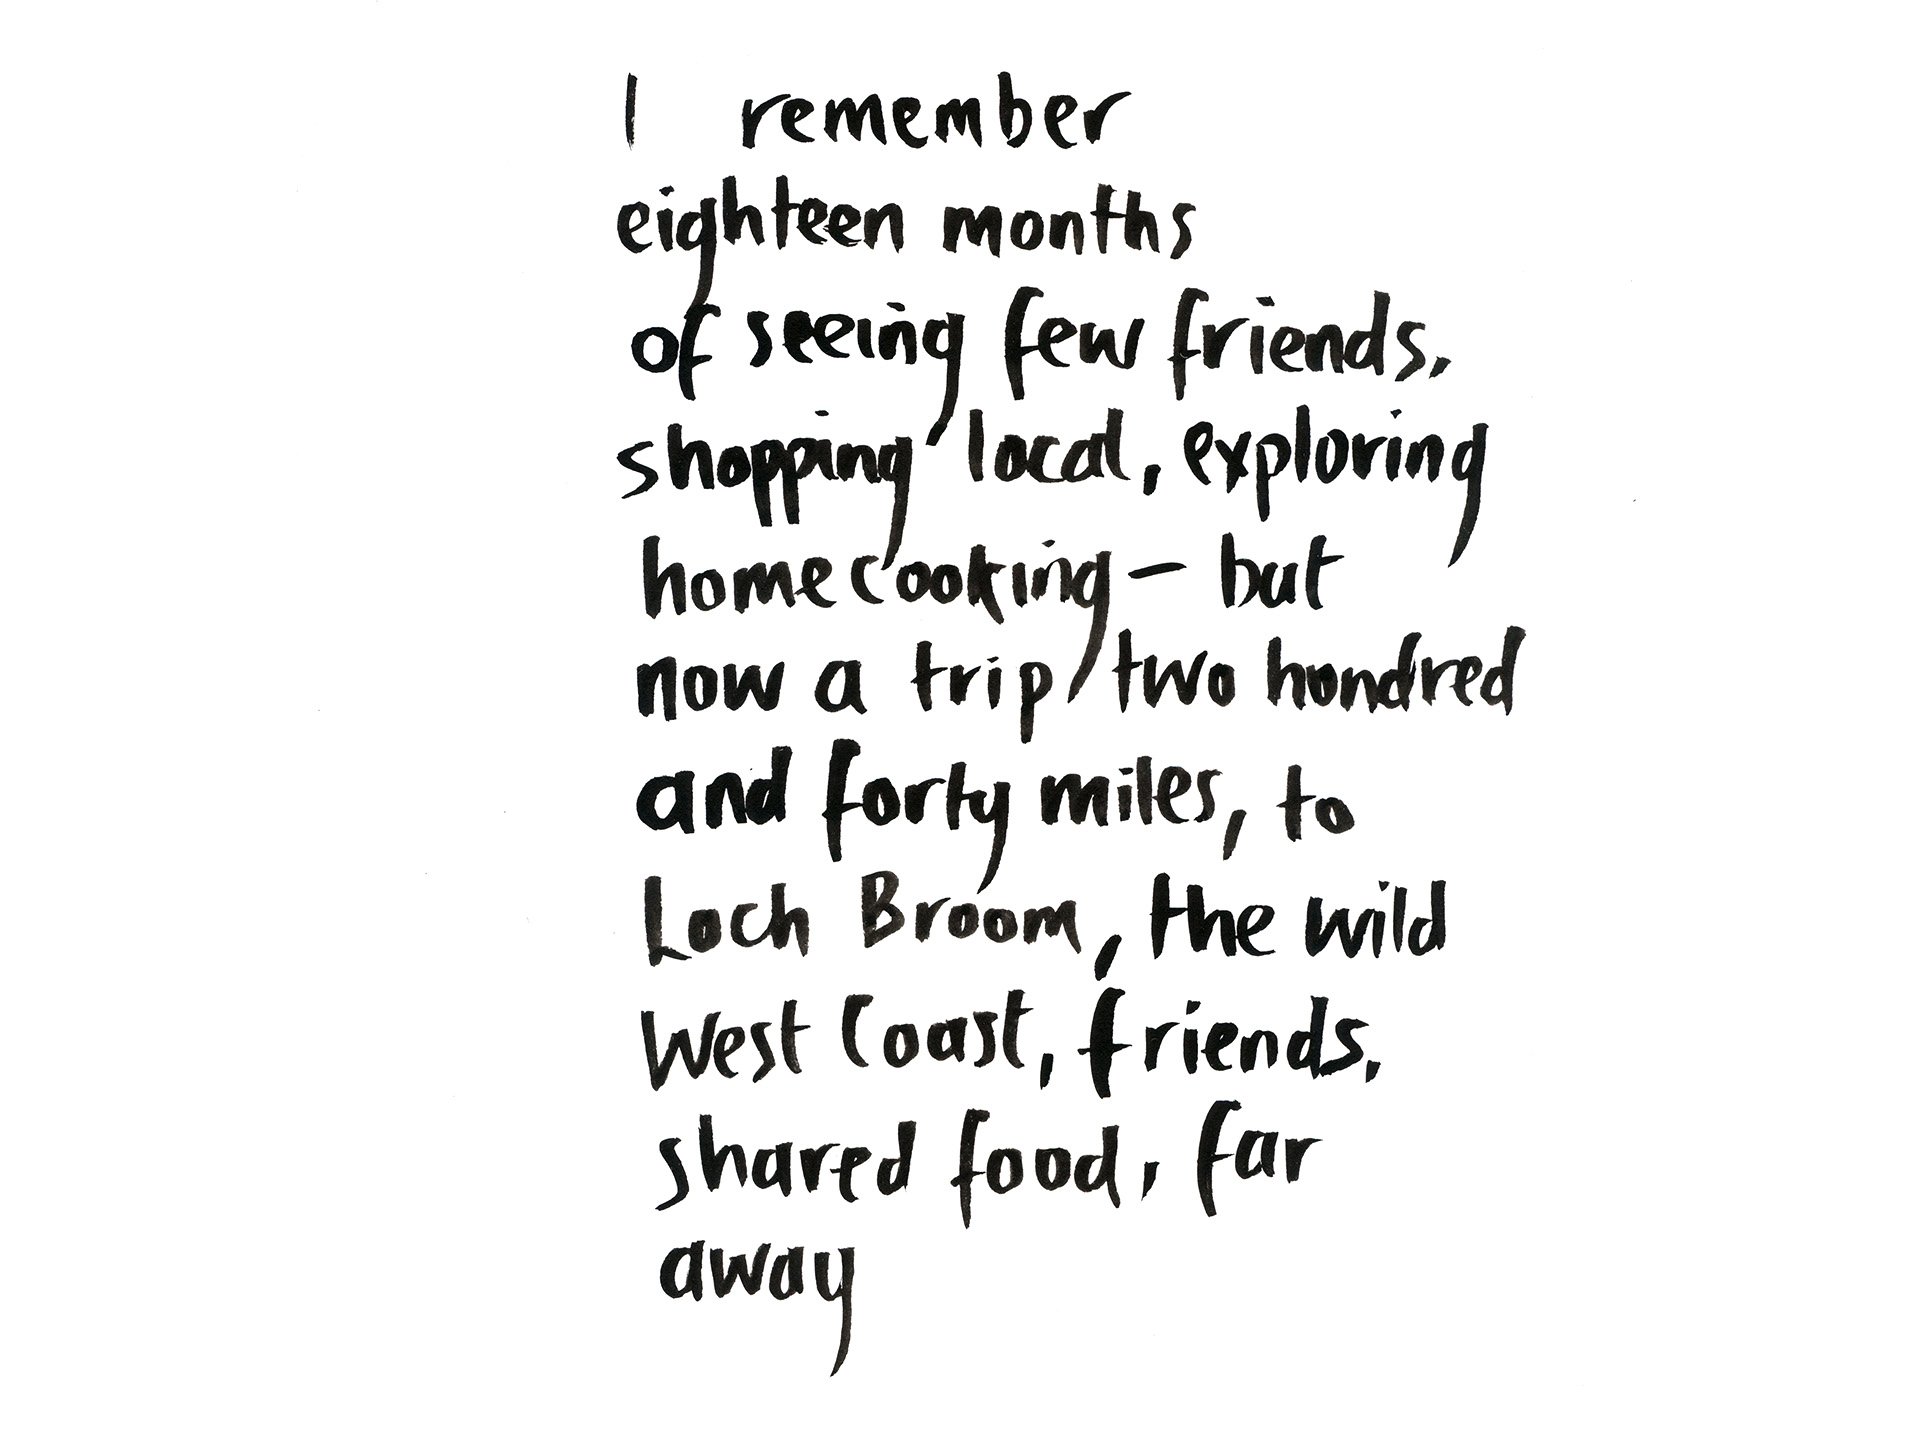 I remember
eighteen months
of seeing few friends,
shopping local, exploring
home cooking – but
now a trip two hundred
and forty miles, to
Loch Broom, the wild
West Coast, friends,
shared food, far
away